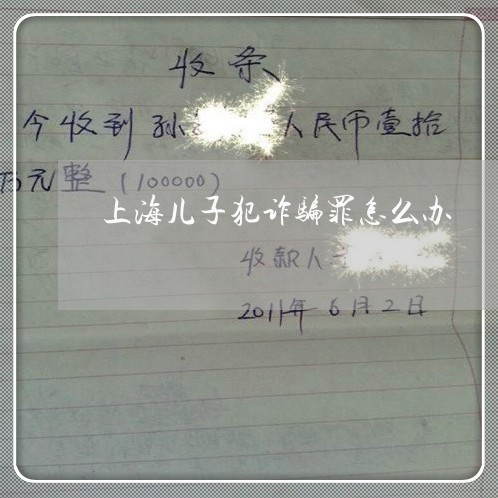 收条
今收到孙 人民币壹拾
万元整（100000）
上海儿子犯诈骗罪怎么办
收款人
2011年6月2日